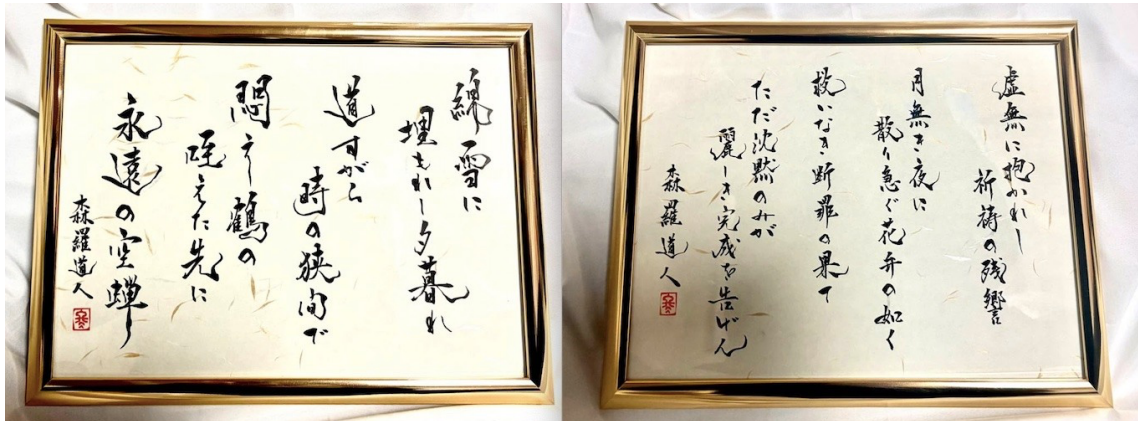 綿雪に
埋もれし夕暮れ
道すがら
時の狭間で
悶えし鶴の
咥えた先に
永遠の空蝉し
森羅道人
虚無に抱かれし
祈祷の残響
月無き夜に
散り急ぐ花弁の如く
救いなき断罪の果て
ただ沈黙のみが
麗しき完成を告げん
森羅道人